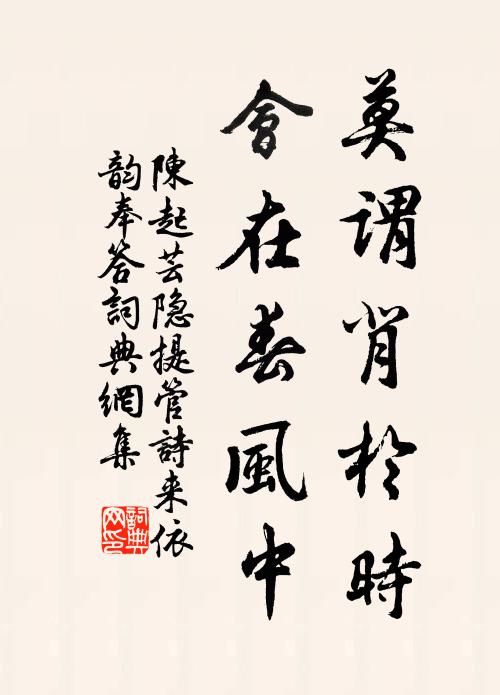 莫谓背於時
會在春風中
陳起芸隐提管詩来依
韵奉答詞典網集
詞典网印